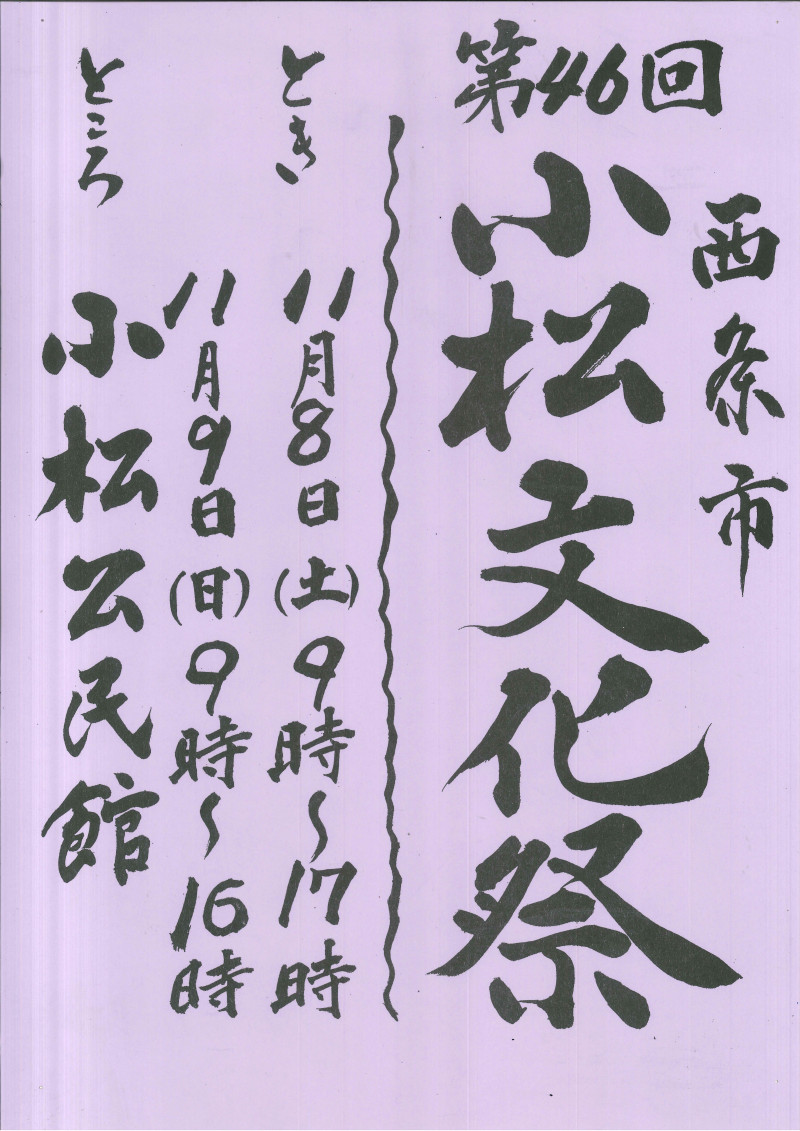 第46回
西条市
小松文化祭
とき
11月8日(土)9時~17時
11月9日(日)9時~16時
ところ
小松公民館